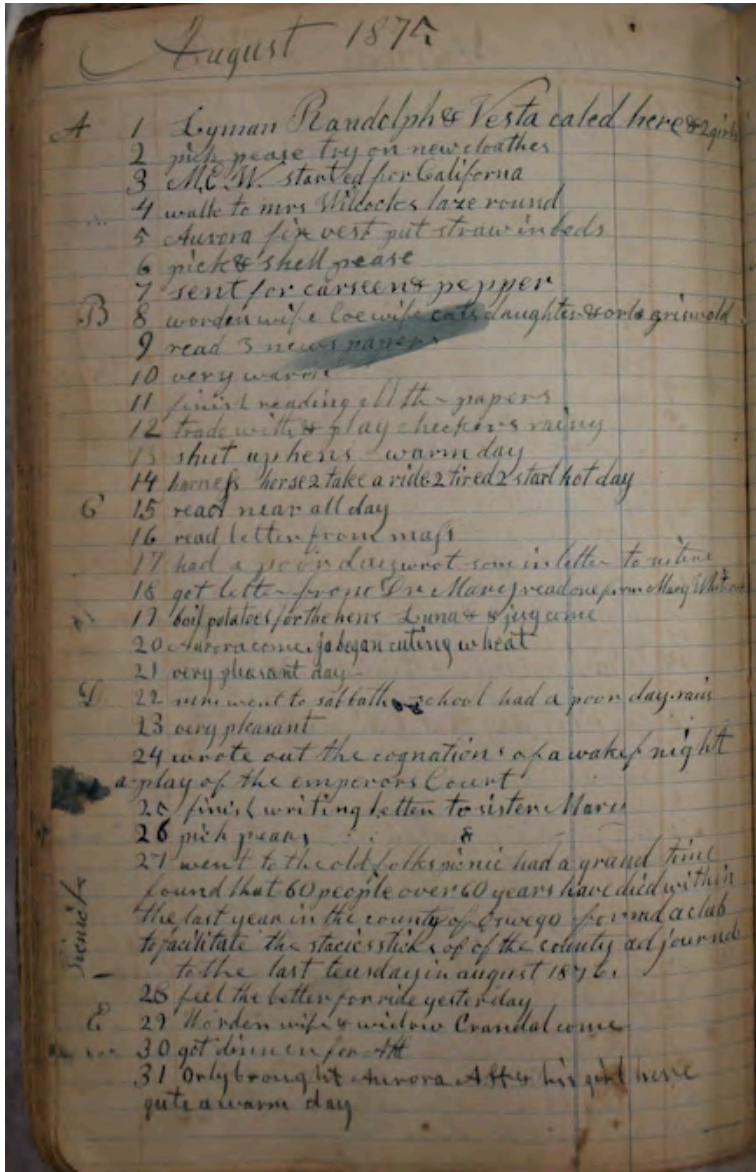 August 1875
A 1 Lyman Randolph & Vesta caled here & 2 girls
2 pick pease try on new cloathes
3 M.E.W. started for Californa
4 walk to mrs Wilcocks laze round
5 Aurora fix vest put straw in beds
6 pick & shell pease
7 sent for & pepper
B 8 worden wife Coe wife daughter & orla griswold
9 read 3 news papers
10 very warm
11 finish reading all the papers
12 trade with & play checkers rainy
13 shut up hens warm day
14 harness horse 2 take a ride 2 tired 2 start hot day
C 15 read near all day
16 read letter from mass
17 had a poor day wrot som in letter to
18 got letter from Dr Marcy read one from Mary
19 boil potatoes for the hens Luna & come
20 Aurora come began cuting wheat
21 very pleasant day
D 22 went to sabbath school had a poor day rain
23 very pleasant
24 wrote out the cognations of a wakef night
a play of the emperors Court
25 finish writing letter to sister Mary
26 pick &
27 went to the old folks picnic had a grand time
found that 60 people over 60 years have died within
the last year in the county of Oswego formd a club
to facilitate the of of the county adjournd
to the last teusday in august 1876.
picnic
28 feel the better for ride yesterday
E 29 Worden wife & widow Crandal come
30 got dinner for
31 Orly brought Aurora & his girl here
quite a warm day